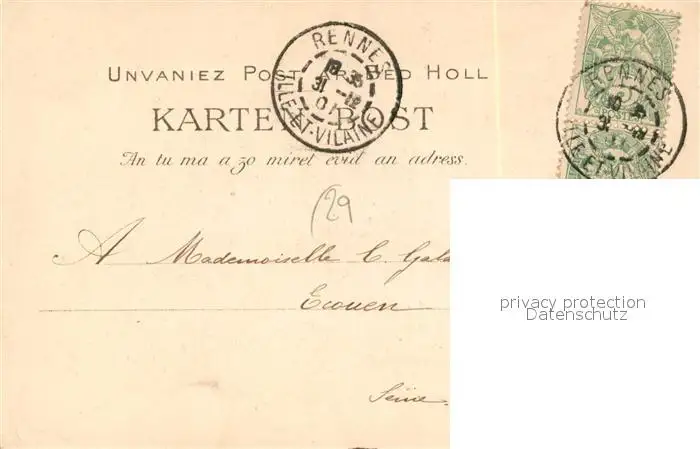 RENNES
18 35
31 -12
01
ILLE-ET-VILAINE
RENNES
ILLE-ET-VILAINE
POSTES
UNVANIEZ POST AR BED HOLL
KARTEN-POST
An tu ma a zo miret evid an adress.
(29
A Mademoiselle C.
Ecouen
Seine
privacy protection
Datenschutz